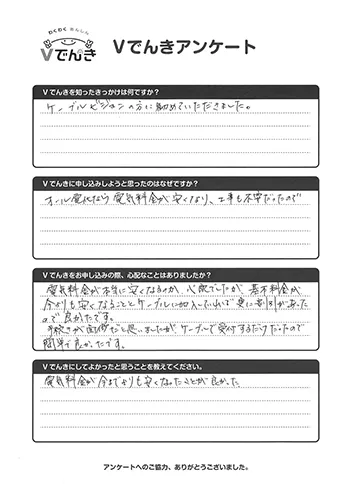 わくわく あんしん
Vでんき
Vでんきアンケート
Vでんきを知ったきっかけは何ですか？
ケーブルビジョンの方に勧めていただきました。
Vでんきに申し込みしようと思ったのはなぜですか？
オール電化なら電気料金が安くなり、工事も不要だったので
Vでんきをお申し込みの際、心配なことはありましたか？
電気料金が本当に安くなるのか、心配でしたが、基本料金が
今よりも安くなることとケーブルに加入していれば更に割引があった
ので良かったです。
手続きが面倒だと思いましたがケーブルで受付するだけだったので
簡単で良かったです。
Vでんきにしてよかったと思うことを教えてください。
電気料金が今までよりも安くなったことが良かった
アンケートへのご協力、ありがとうございました。